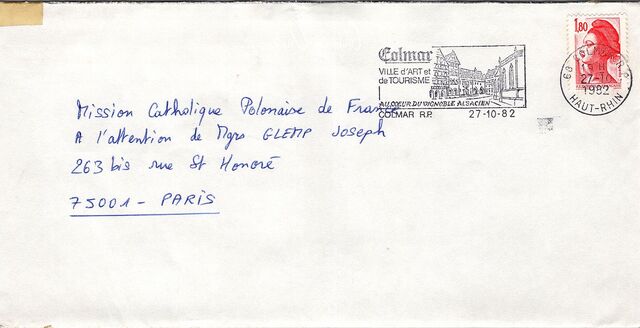 Colmar
VILLE d'ART et
de TOURISME
AU COEUR DU VIGNOBLE ALSACIEN
COLMAR R.P. 27-10-82
1,80
68 COLMAR R.P.
27-10
1982
HAUT-RHIN
Mission Catholique Polonaise de France
A l'attention de Mgrs GLEMP Joseph
263 bis rue St Honoré
75001 - PARIS